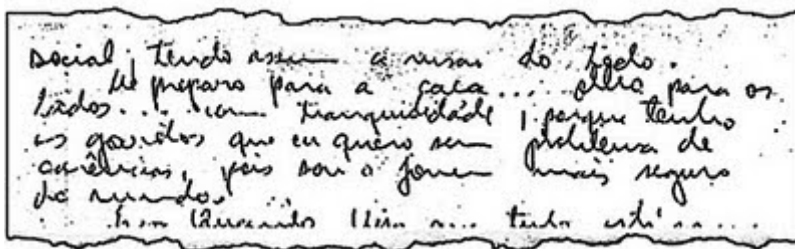 social, tendo assim a visão do todo.
Me preparo para a caça... olho para os
lados... com tranquilidade, porque tenho
os garotos que eu quero sem problema de
carências, pois sou o jovem mais seguro
do mundo.
tudo